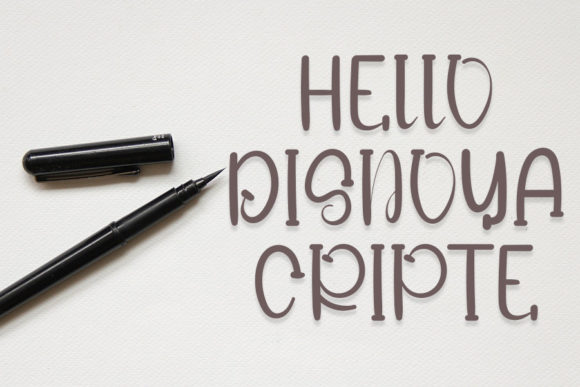 HELLO
DISNOYA
CRIPTE